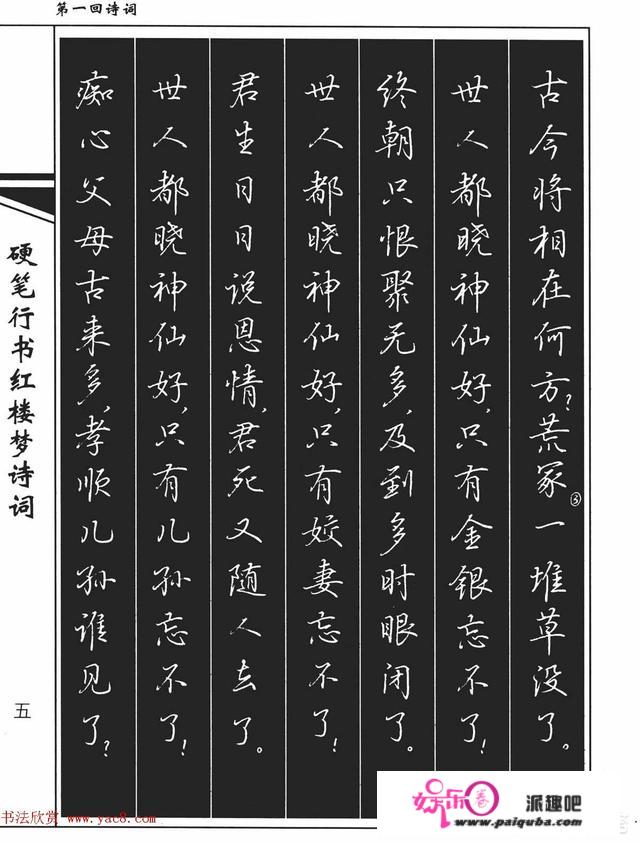 第一回诗词
古今将相在何方？荒冢③一堆草没了。
世人都晓神仙好，只有金银忘不了！
终朝只恨聚无多，及到多时眼闭了。
世人都晓神仙好，只有姣妻忘不了！
君生日日说恩情，君死又随人去了。
世人都晓神仙好，只有儿孙忘不了！
痴心父母古来多，孝顺儿孙谁见了？
硬笔行书红楼梦诗词
五
书法欣赏 www.yac8.com
娱乐圈 派趣吧
www.paiquba.com